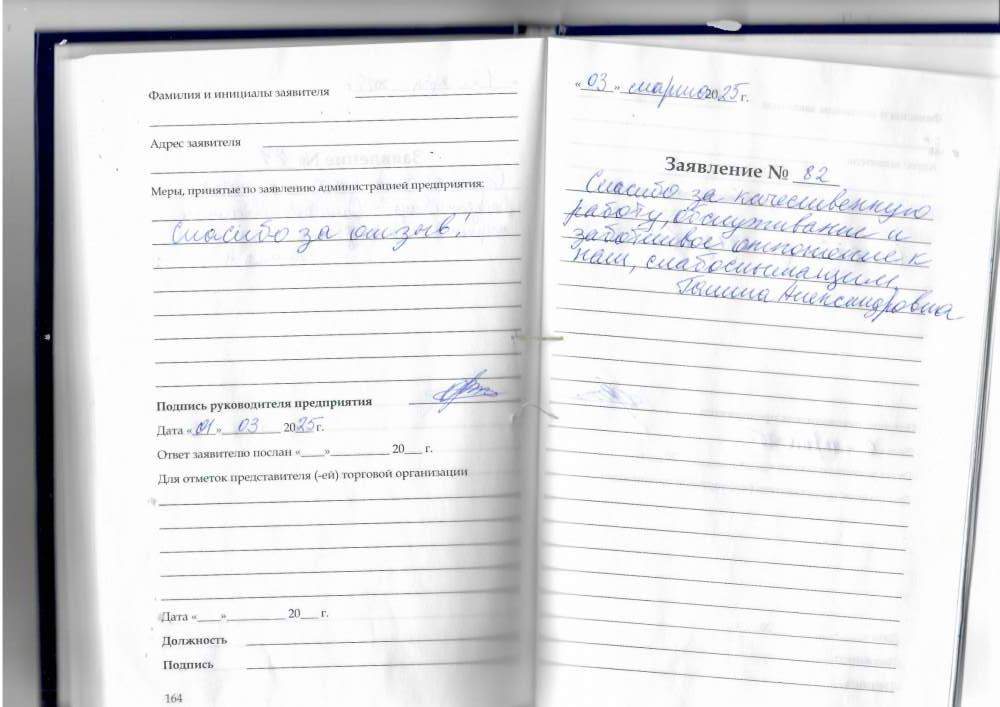 Фамилия и инициалы заявителя
Адрес заявителя
Меры, принятые по заявлению администрацией предприятия:
Спасибо за отзыв!
Подпись руководителя предприятия
Дата «01» 03 2025 г.
Ответ заявителю послан «    »            20    г.
Для отметок представителя (-ей) торговой организации
Дата «    »            20    г.
Должность
Подпись
164
«03» марта 2025 г.
Заявление № 82
Спасибо за качественную
работу, обслуживание и
заботливое отношение к
нам, слабослышащим.
Галина Александровна